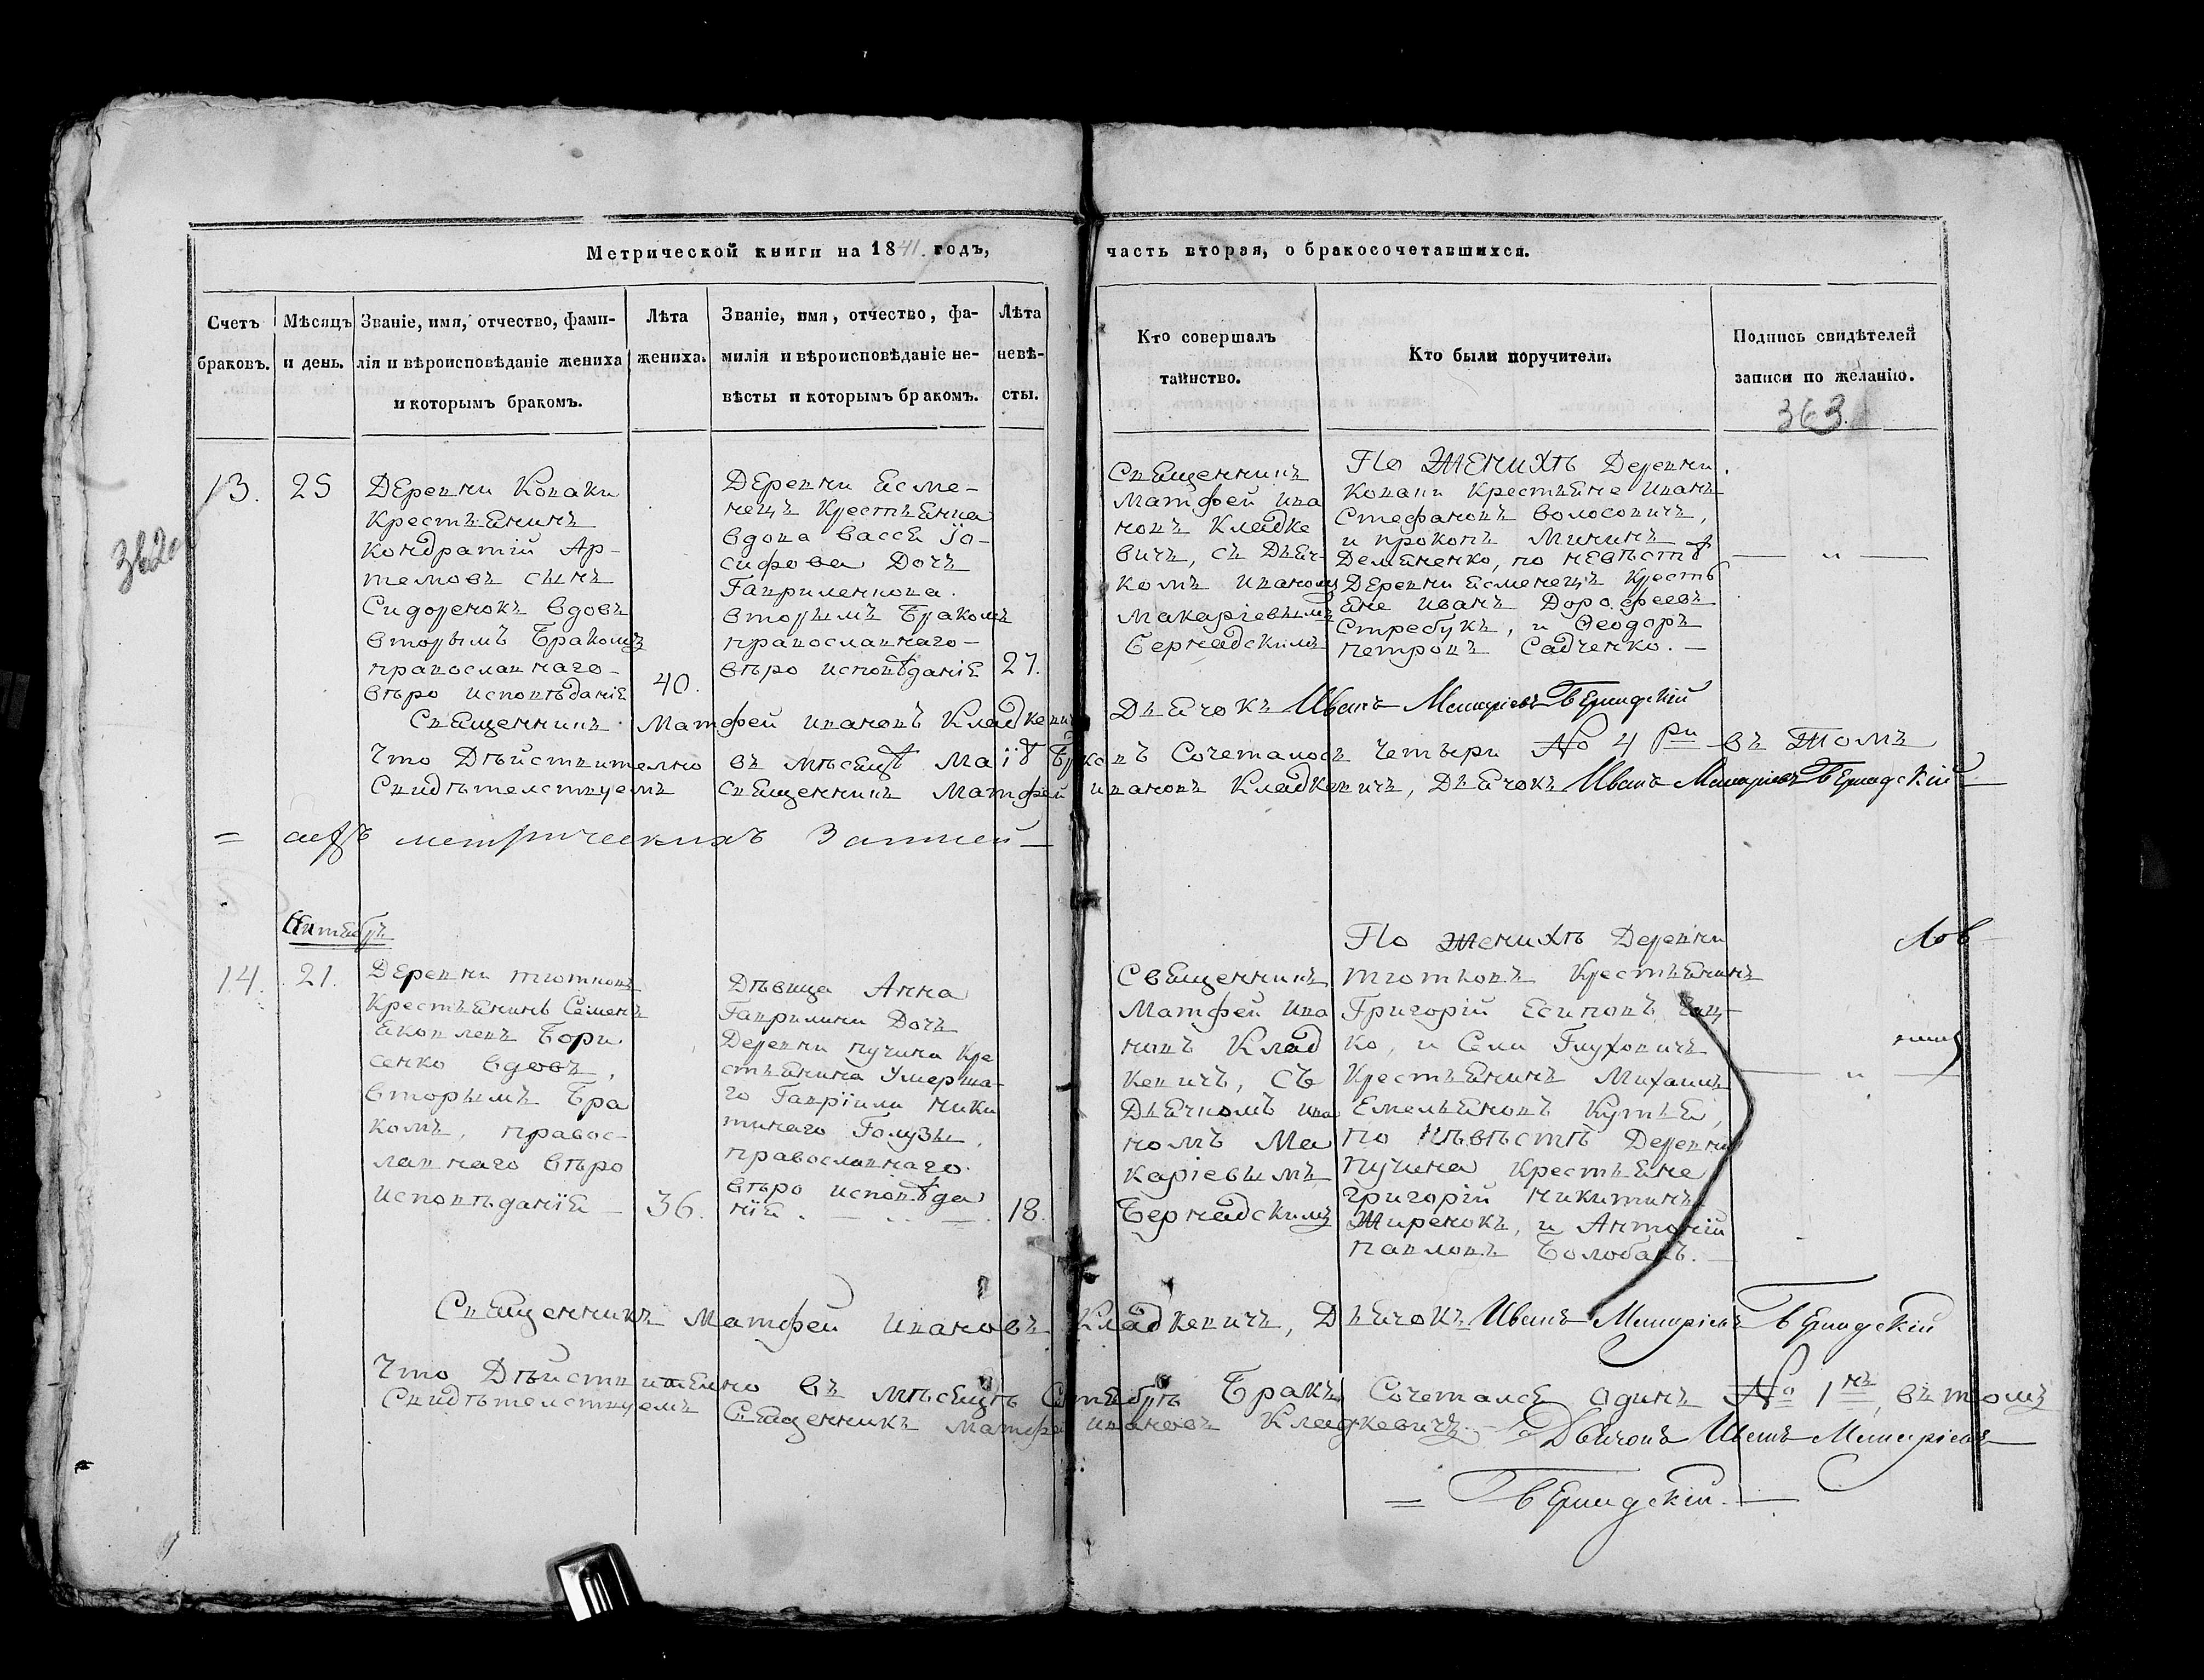 Метрической книги на 1841. годъ,
часть вторая, о бракосочетавшихся.
Счетъ браковъ.
Мѣсяцъ и день.
Званіе, имя, отчество, фами-
лія и вѣроисповѣданіе жениха
и которымъ бракомъ.
Лѣта
жениха.
Званіе, имя, отчество, фа-
милія и вѣроисповѣданіе не-
вѣсты и которымъ бракомъ.
Лѣта
невѣ-
сты.
Кто совершалъ
таинство.
Кто были поручители.
Подпись свидѣтелей
записи по желанію.
363
362
13.
25
Деревни Коваки
Крестьянинъ
Кондратій Ар-
темовъ сынъ
Сидоренокъ вдовъ
вторымъ Бракомъ
православнаго
вѣро исповѣданія
40.
Деревни
Крестьянка
вдова Васся Іо-
сифова Дочь
Гавриленкова.
вторымъ Бракомъ
православнаго
вѣро исповѣданія
27.
Священникъ
Матфей Ива
новъ Кладке
вичъ, съ Дьяч-
комъ Иваномъ
Макаріевымъ
Бернадскимъ
По Женихѣ Деревни
Крестьяне Иванъ
Стефановъ Волосовичъ,
и Прокопъ Мининъ
Демяненко, по невѣстѣ
Деревни Кресть
яне Иванъ Дорофеевъ
Стребукъ, и Ѳеодоръ
Петровъ Садченко.
Священникъ Матфей Ивановъ Кладкевичъ
Дьячокъ Иванъ Макаріевъ Бернадскій
Что Дѣйствительно въ мѣсяцѣ Маіѣ Браковъ Сочеталось Четыри № 4 ри въ Томъ
Свидѣтельствуемъ Священникъ Матфей Ивановъ Кладкевичъ, Дьячокъ Иванъ Макаріевъ Бернадскій
= метрическихъ
Лов
14.
21.
Деревни
Крестьянинъ Семенъ
Яковлевъ Бори
сенко вдовъ,
вторымъ Бра
комъ, правос-
лавнаго вѣро
исповѣданія
36.
Дѣвица Анна
Гаврилини Дочь
Деревни Пучина Кре
стьянина Умерша-
го Гавріила Ники
тинаго Голузы,
православнаго
вѣро исповѣда
нія.
18.
Священникъ
Матфей Ива
новъ Клад
кевичъ, Съ
Дьячкомъ Ива
номъ Ма
каріевымъ
Бернадскимъ
По Женихѣ Деревни
Крестьянинъ
Григорій Есиповъ
ко, и Села Глуховичъ
Крестьянинъ Михаилъ
Емельяновъ Кутья,
По Невѣстѣ Деревни
Пучина Крестьяне
Григорій Никитинъ
Жиренокъ, и Антоній
Павловъ Болобанъ.
Священникъ Матфей Ивановъ Кладкевичъ, Дьячокъ Иванъ Макаріевъ Бернадскій
Что Дѣйствительно въ мѣсяцѣ Бракъ Сочетался Одинъ № 1 нъ, въ томъ
Свидѣтельствуемъ Священникъ Матфей Ивановъ Кладкевичъ. Дьячокъ Иванъ Макаріевъ
= Бернадскій.